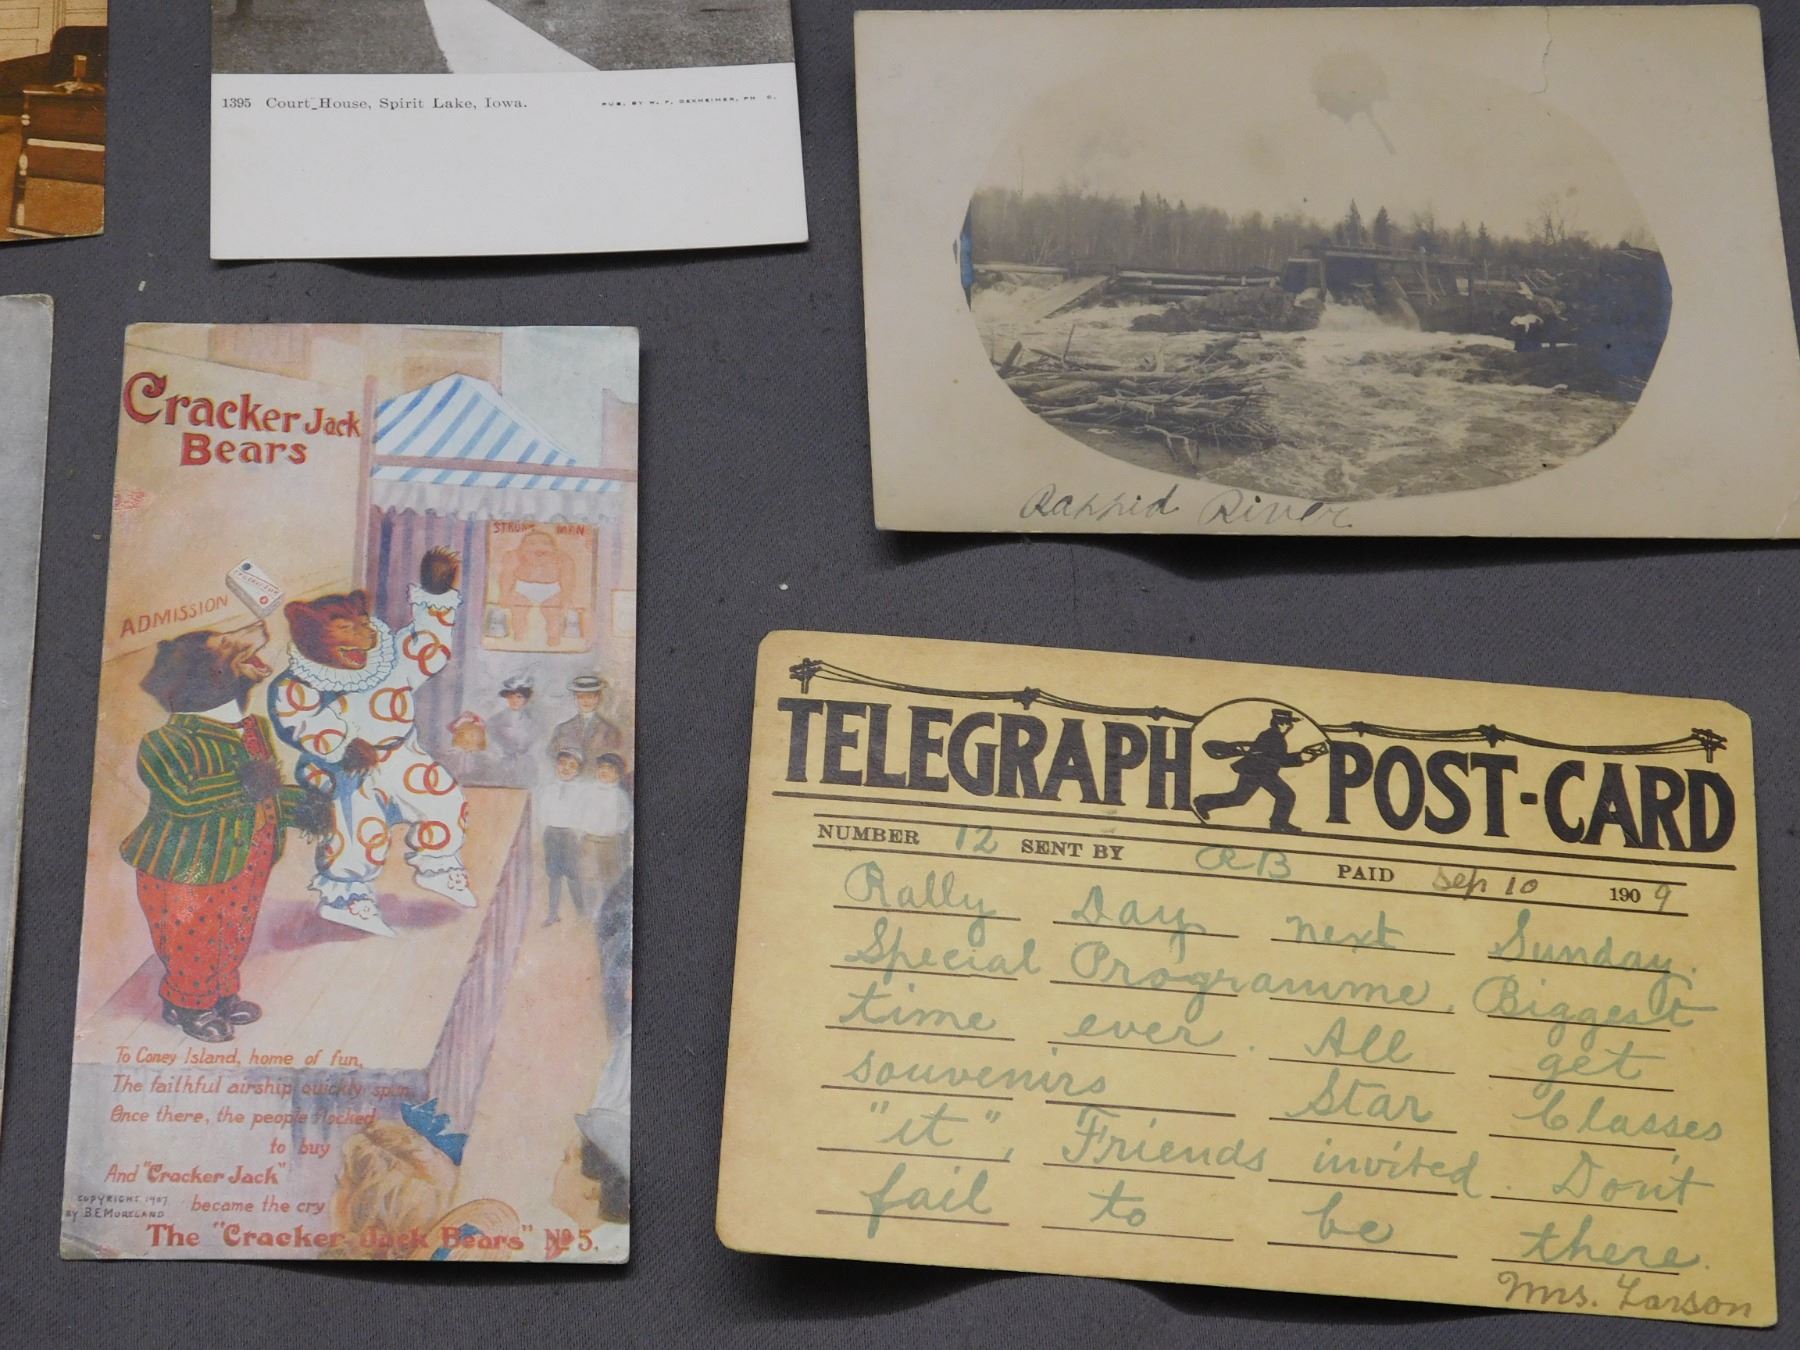 1395 Court-House, Spirit Lake, Iowa.
PUB. BY W. F. DEXHEIMER, PH C.
Rappid River
Cracker Jack
Bears
STRONG MAN
ADMISSION
To Coney Island, home of fun,
The faithful airship quickly spun
Once there, the people flocked
to buy
And "Cracker Jack"
became the cry
COPYRIGHT 1907
BY B.E. MORELAND
The "Cracker Jack Bears" No 5.
TELEGRAPH POST-CARD
NUMBER 12 SENT BY CRB PAID Sep 10 1909
Rally Day next Sunday.
Special Programme. Biggest
time ever. All get
souvenirs Star Classes
"it", Friends invited. Don't
fail to be there.
Mrs. Larson